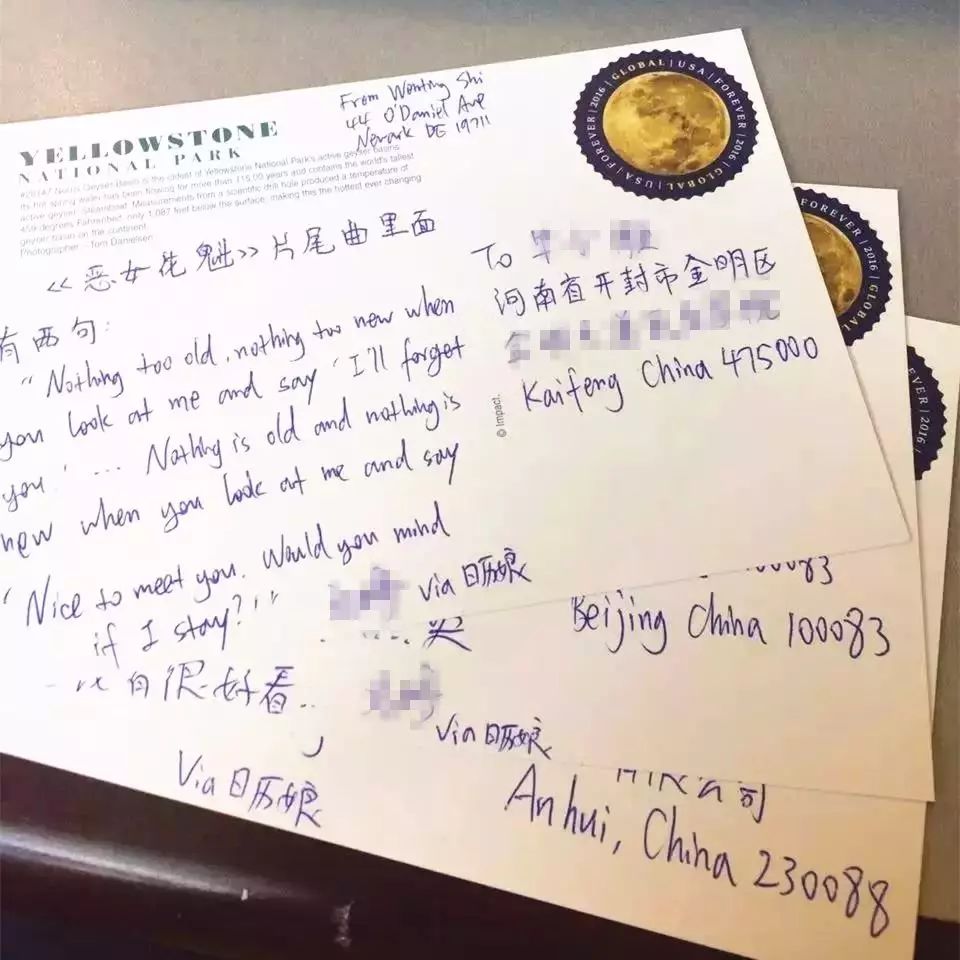 YELLOWSTONE
NATIONAL PARK
Norris Geyser Basin is the oldest of Yellowstone National Park's active geyser basins.
Its hot spring water has been flowing for more than 115,00 years and contains the world's tallest
active geyser, Steamboat. Measurements from a scientific drill hole produced a temperature of
459 degrees Fahrenheit, only 1,087 feet below the surface, making this the hottest ever changing
geyser basin on the continent.
Photographer - Tom Danielsen
From Wenting Shi
44 O'Daniel Ave
Newark DE 19711
GLOBAL | USA | FOREVER | 2016 | GLOBAL | USA | FOREVER | 2016
《恶女花魁》片尾曲里面
有两句:
"Nothing too old, nothing too new when
you look at me and say 'I'll forget
you.' ... Nothing is old and nothing is
new when you look at me and say
'Nice to meet you. Would you mind
if I stay?'"
via 日历娘
To
河南省开封市金明区
Kaifeng China 475000
© Impact.
FOREVER | 2016 | GLOBAL
100083
Beijing China 100083
Via 日历娘
EVER | 2016 |
很好看...
Via 日历娘
公司
Anhui, China 230088